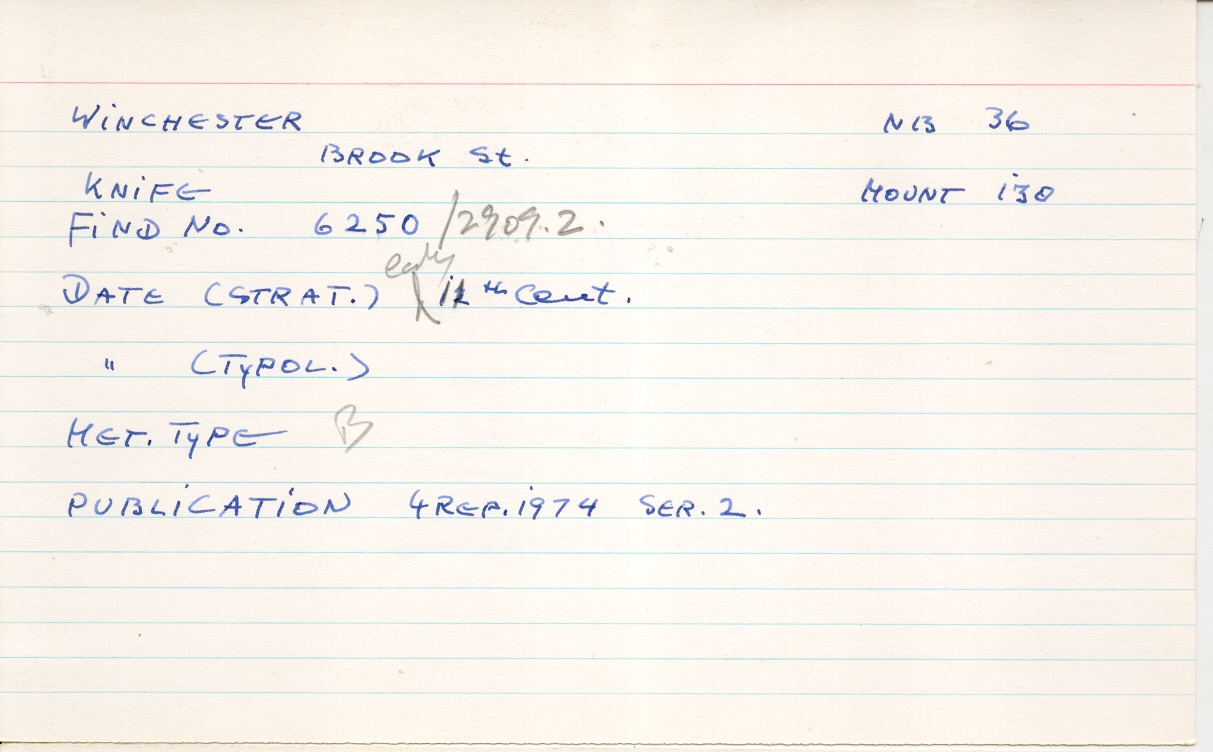 WINCHESTER NB 36
BROOK St.
KNIFE MOUNT 130
FIND No. 6250 /2909.2.
early
DATE (STRAT.) th Cent.
" (TYPOL.)
MET. TYPE B
PUBLICATION 4 REP. 1974 SER. 2.